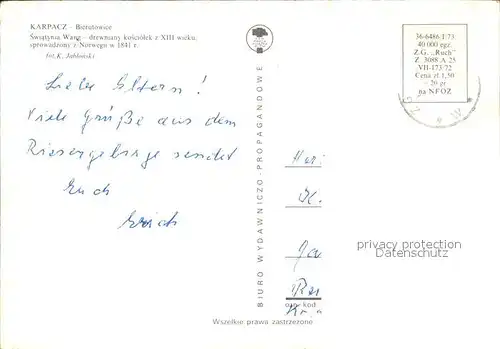 KARPACZ - Bierutowice
Świątynia Wang - drewniany kościółek z XIII wieku,
sprowadzony z Norwegii w 1841 r.
fot. K. Jabłoński
Liebe Eltern!
Viele Grüße aus dem
Riesengebirge sendet
Euch
Erich
BIURO WYDAWNICZO-PROPAGANDOWE
36-6486 I/73
40 000 egz.
Z.G. „Ruch"
Z 3088 A 25
VII-173-72
Cena zł 1,50
+ 20 gr
na NFOZ
privacy protection
Datenschutz
kod
Wszelkie prawa zastrzeżone